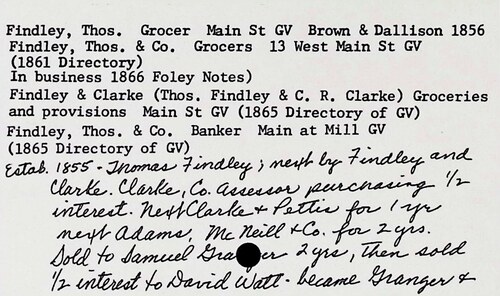 Findley, Thos. Grocer Main St GV Brown & Dallison 1856
Findley, Thos. & Co. Grocers 13 West Main St GV
(1861 Directory)
In business 1866 Foley Notes)
Findley & Clarke (Thos. Findley & C. R. Clarke) Groceries
and provisions Main St GV (1865 Directory of GV)
Findley, Thos. & Co. Banker Main at Mill GV
(1865 Directory of GV)
Estab. 1855 - Thomas Findley; next by Findley and
Clarke. Clarke, Co. Assessor purchasing 1/2
interest. Next Clarke & Pettis for 1 yr
next Adams, McNeill & Co. for 2 yrs.
Sold to Samuel Granger 2 yrs, then sold
1/2 interest to David Watt - became Granger &